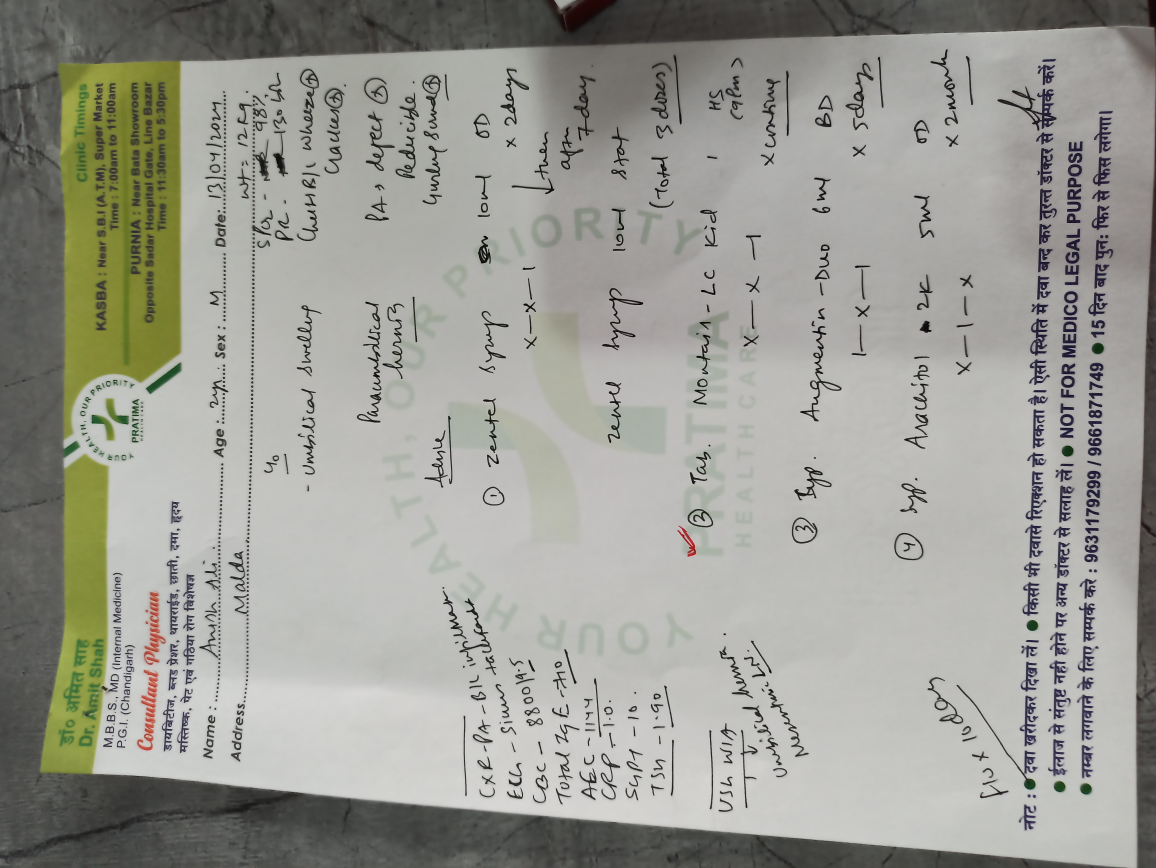 डॉ० अमित साह
Dr. Amit Shah
M.B.B.S., MD (Internal Medicine)
P.G.I. (Chandigarh)
Consultant Physician
डायबिटीज, ब्लड प्रेशर, थायराईड, छाती, दमा, हृदय
मस्तिष्क, पेट एवं गठिया रोग विशेषज्ञ
YOUR HEALTH, OUR PRIORITY
PRATIMA
HEALTH CARE
Clinic Timings
KASBA : Near S.B.I (A.T.M), Super Market
Time : 7:00am to 11:00am
PURNIA : Near Bata Showroom
Opposite Sadar Hospital Gate, Line Bazar
Time : 11:30am to 5:30pm
Name : Ali Age : 2yr Sex : M Date: 13/04/2024
Address Malda
wt = 12 kg
SPO2 - 98%
PR - 130
c/o
- Umbilical swelling
Chest B/L wheeze (+)
Crackles (+)
Paraumbilical hernia
P/A → defect (+)
Reducible
Gurling sound (+)
Advise
① Zentel syrup 10ml OD
x—x—1 x 2days
then after 7day.
Zentel syrup 10ml stat
(Total 3 doses)
② Tab. Montair-LC Kid 1 HS (9pm)
x—x—1 x continue
③ Syp. Augmentin-Duo 6ml BD
1—x—1 x 5days
④ Syp. Arachitol 2K 5ml OD
x—1—x x 2month
CXR-PA - B/L infiltrate
ECG - Sinus tachycardia
CBC - 8800/9.5
Total IgE - 710
AEC - 1144
CRP - 1.0.
SGPT - 10.
TSH - 1.90
USG W/A
Umbilical hernia.
Mesenteric LN.
F/U x 10 days
YOUR HEALTH, OUR PRIORITY
PRATIMA
HEALTH CARE
नोट : ● दवा खरीदकर दिखा लें। ● किसी भी दवासे रिएक्शन हो सकता है। ऐसी स्थिति में दवा बन्द कर तुरन्त डॉक्टर से सम्पर्क करें।
● ईलाज से संतुष्ट नही होने पर अन्य डॉक्टर से सलाह लें। ● NOT FOR MEDICO LEGAL PURPOSE
● नम्बर लगवाने के लिए सम्पर्क करे : 9631179299 / 9661871749 ● 15 दिन बाद पुन: फिर से फिस लगेगा।